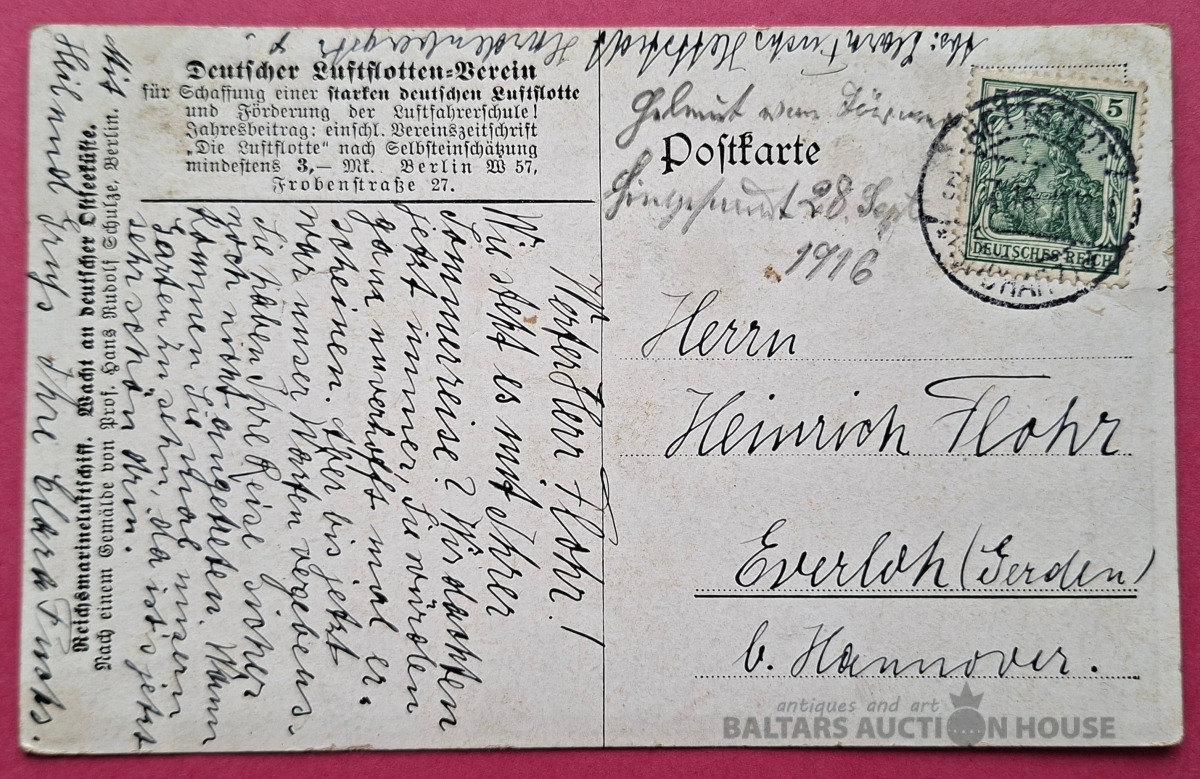 Deutscher Luftflotten-Verein
für Schaffung einer starken deutschen Luftflotte
und Förderung der Luftfahrerschule!
Jahresbeitrag: einschl. Vereinszeitschrift
„Die Luftflotte" nach Selbsteinschätzung
mindestens 3,— Mk. Berlin W 57,
Frobenstraße 27.
Reichsmarineluftschiff. Wacht an deutscher Ostseeküste.
Nach einem Gemälde von Prof. Hans Rudolf Schulze, Berlin.
Werter Herr Flohr!
Wie steht es mit Ihrer
Sommerreise? Wir dachten
jetzt immer, Sie würden
ganz unverhofft mal er-
scheinen. Aber bis jetzt
war unser Warten vergebens.
Sie haben Ihre Reise sicher
noch nicht angetreten. Wann
kommen Sie mal unsern
Garten zu sehn, da ists jetzt
sehr schön drin.
Mit
Heil und Gruß Ihre Clara Fuchs.
Abs: Clara Fuchs Hettstedt
Postkarte
Helmut von
28. Sept
1916
5
DEUTSCHES REICH
HETTSTEDT
Herrn
Heinrich Flohr
Everloh (Gerden)
b. Hannover.
antiques and art
BALTARS AUCTION HOUSE